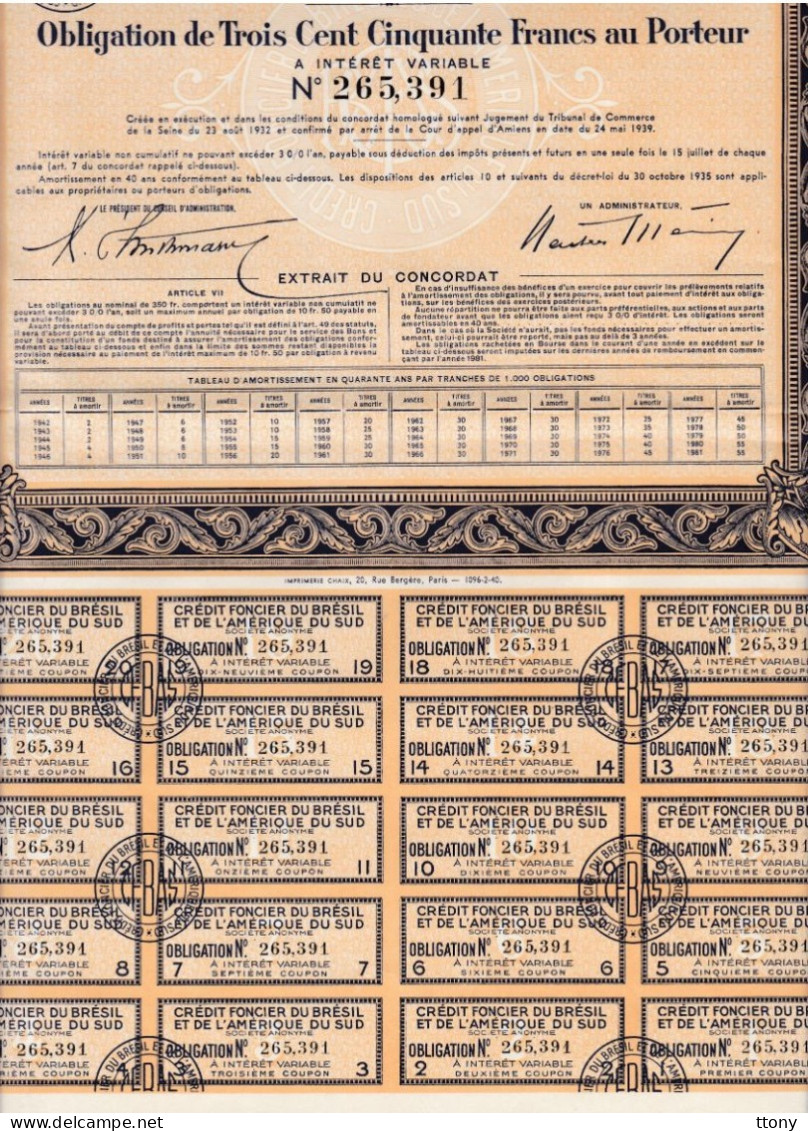 Obligation de Trois Cent Cinquante Francs au Porteur
A INTÉRÊT VARIABLE
Nº 265,391
Créée en exécution et dans les conditions du concordat homologué suivant Jugement du Tribunal de Commerce
de la Seine du 23 août 1932 et confirmé par arrêt de la Cour d'appel d'Amiens en date du 24 mai 1939.
Intérêt variable non cumulatif ne pouvant excéder 3 0/0 l'an, payable sous déduction des impôts présents et futurs en une seule fois le 15 juillet de chaque
année (art. 7 du concordat rappelé ci-dessous).
Amortissement en 40 ans conformément au tableau ci-dessous. Les dispositions des articles 10 et suivants du décret-loi du 30 octobre 1935 sont appli-
cables aux propriétaires ou porteurs d'obligations.
LE PRÉSIDENT DU CONSEIL D'ADMINISTRATION,
UN ADMINISTRATEUR,
EXTRAIT DU CONCORDAT
ARTICLE VII
Les obligations au nominal de 350 fr. comportent un intérêt variable non cumulatif ne
pouvant excéder 3 0 0 l'an, soit un maximum annuel par obligation de 10 fr. 50 payable en
une seule fois.
Avant présentation du compte de profits et pertes tel qu'il est défini à l'art. 49 des statuts,
il sera d'abord porté au débit de ce compte l'annuité nécessaire pour le service des Bons et
pour la constitution d'un fonds destiné à assurer l'amortissement des obligations confor-
mément au tableau ci-dessous et enfin dans la limite des sommes restant disponibles la
provision nécessaire au paiement de l'intérêt maximum de 10 fr. 50 par obligation à revenu
variable.
En cas d'insuffisance des bénéfices d'un exercice pour couvrir les prélèvements relatifs
à l'amortissement des obligations, il y sera pourvu, avant tout paiement d'intérêt aux obliga-
tions, sur les bénéfices des exercices postérieurs.
Aucune répartition ne pourra être faite aux parts préférentielles, aux actions et aux parts
de fondateur avant que les obligations aient reçu 3 0/0 d'intérêt. Les obligations seront
amortissables en 40 ans.
Dans le cas où la Société n'aurait, pas les fonds nécessaires pour effectuer un amortis-
sement, celui-ci pourrait être reporté, mais pas au delà de 3 années.
Les obligations rachetées en Bourse dans le courant d'une année en excédent sur le
tableau ci-dessous seront imputées sur les dernières années de remboursement en commen-
çant par l'année 1981.
TABLEAU D'AMORTISSEMENT EN QUARANTE ANS PAR TRANCHES DE 1.000 OBLIGATIONS
ANNÉES TITRES à amortir ANNÉES TITRES à amortir ANNÉES TITRES à amortir ANNÉES TITRES à amortir ANNÉES TITRES à amortir ANNÉES TITRES à amortir ANNÉES TITRES à amortir ANNÉES TITRES à amortir
1942 2 1947 6 1952 10 1957 20 1962 30 1967 30 1972 35 1977 45
1943 2 1948 6 1953 10 1958 25 1963 30 1968 30 1973 35 1978 50
1944 2 1949 6 1954 15 1959 25 1964 30 1969 30 1974 40 1979 50
1945 4 1950 8 1955 15 1960 30 1965 30 1970 30 1975 40 1980 55
1946 4 1951 10 1956 20 1961 30 1966 30 1971 30 1976 45 1981 55
IMPRIMERIE CHAIX, 20, Rue Bergère, Paris — 1096-2-40.
ONCIER DU BRÉSIL CRÉDIT FONCIER DU BRÉSIL CRÉDIT FONCIER DU BRÉSIL CRÉDIT FONCIER DU
MÉRIQUE DU SUD ET DE L'AMÉRIQUE DU SUD ET DE L'AMÉRIQUE DU SUD ET DE L'AMÉRIQUE
TÉ ANONYME SOCIÉTÉ ANONYME SOCIÉTÉ ANONYME SOCIÉTÉ ANONY
Nº 265,391 OBLIGATION Nº 265,391 OBLIGATION Nº 265,391 OBLIGATION Nº 265,
ÉRÊT VARIABLE 20 19 A INTÉRÊT VARIABLE 19 18 A INTÉRÊT VARIABLE 18 17 A INTÉRÊT VARI
IÈME COUPON DIX-NEUVIÈME COUPON DIX-HUITIÈME COUPON DIX-SEPTIÈME COUP
ONCIER DU BRÉSIL CRÉDIT FONCIER DU BRÉSIL CRÉDIT FONCIER DU BRÉSIL CRÉDIT FONCIER DU
MÉRIQUE DU SUD ET DE L'AMÉRIQUE DU SUD ET DE L'AMÉRIQUE DU SUD ET DE L'AMÉRIQUE
TÉ ANONYME SOCIÉTÉ ANONYME SOCIÉTÉ ANONYME SOCIÉTÉ ANONY
265,391 OBLIGATION Nº 265,391 OBLIGATION Nº 265,391 OBLIGATION Nº 265,
ÉRÊT VARIABLE 16 15 A INTÉRÊT VARIABLE 15 14 A INTÉRÊT VARIABLE 14 13 A INTÉRÊT VARI
IÈME COUPON QUINZIÈME COUPON QUATORZIÈME COUPON TREIZIÈME COUP
ONCIER DU BRÉSIL CRÉDIT FONCIER DU BRÉSIL CRÉDIT FONCIER DU BRÉSIL CRÉDIT FONCIER DU
MÉRIQUE DU SUD ET DE L'AMÉRIQUE DU SUD ET DE L'AMÉRIQUE DU SUD ET DE L'AMÉRIQUE
TÉ ANONYME SOCIÉTÉ ANONYME SOCIÉTÉ ANONYME SOCIÉTÉ ANONY
Nº 265,391 OBLIGATION Nº 265,391 OBLIGATION Nº 265,391 OBLIGATION Nº 265,
ÉRÊT VARIABLE 12 11 A INTÉRÊT VARIABLE 11 10 A INTÉRÊT VARIABLE 10 9 A INTÉRÊT VARI
IÈME COUPON ONZIÈME COUPON DIXIÈME COUPON NEUVIÈME COUP
ONCIER DU BRÉSIL CRÉDIT FONCIER DU BRÉSIL CRÉDIT FONCIER DU BRÉSIL CRÉDIT FONCIER DU
MÉRIQUE DU SUD ET DE L'AMÉRIQUE DU SUD ET DE L'AMÉRIQUE DU SUD ET DE L'AMÉRIQUE
TÉ ANONYME SOCIÉTÉ ANONYME SOCIÉTÉ ANONYME SOCIÉTÉ ANONY
265,391 OBLIGATION Nº 265,391 OBLIGATION Nº 265,391 OBLIGATION Nº 265,
ÉRÊT VARIABLE 8 7 A INTÉRÊT VARIABLE 7 6 A INTÉRÊT VARIABLE 6 5 A INTÉRÊT VARI
IÈME COUPON SEPTIÈME COUPON SIXIÈME COUPON CINQUIÈME COUP
ONCIER DU BRÉSIL CRÉDIT FONCIER DU BRÉSIL CRÉDIT FONCIER DU BRÉSIL CRÉDIT FONCIER DU
MÉRIQUE DU SUD ET DE L'AMÉRIQUE DU SUD ET DE L'AMÉRIQUE DU SUD ET DE L'AMÉRIQUE
TÉ ANONYME SOCIÉTÉ ANONYME SOCIÉTÉ ANONYME SOCIÉTÉ ANONY
265,391 OBLIGATION Nº 265,391 OBLIGATION Nº 265,391 OBLIGATION Nº 265,
ÉRÊT VARIABLE 4 3 A INTÉRÊT VARIABLE 3 2 A INTÉRÊT VARIABLE 2 1 A INTÉRÊT VARI
IÈME COUPON TROISIÈME COUPON DEUXIÈME COUPON PREMIER COUPON
ttony